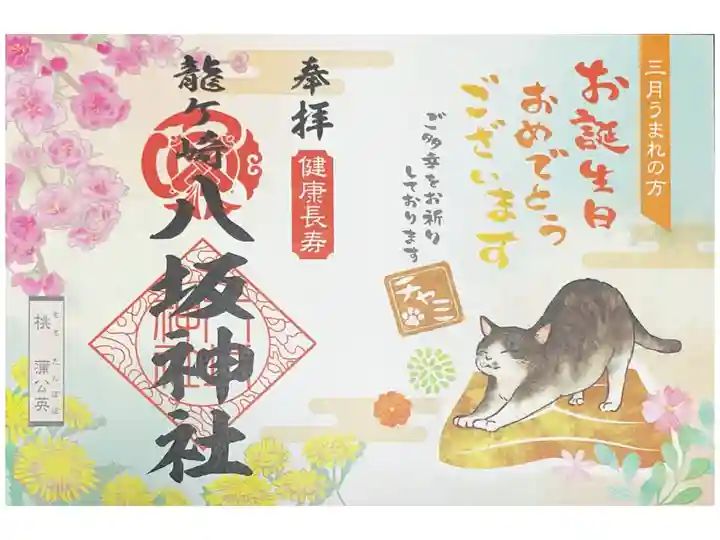 三月うまれの方
お誕生日
おめでとう
ございます
ご多幸をお祈り
しております
チャミ
奉拝
健康長寿
龍ケ崎
八坂神社
桃 もも
蒲公英 たんぽぽ